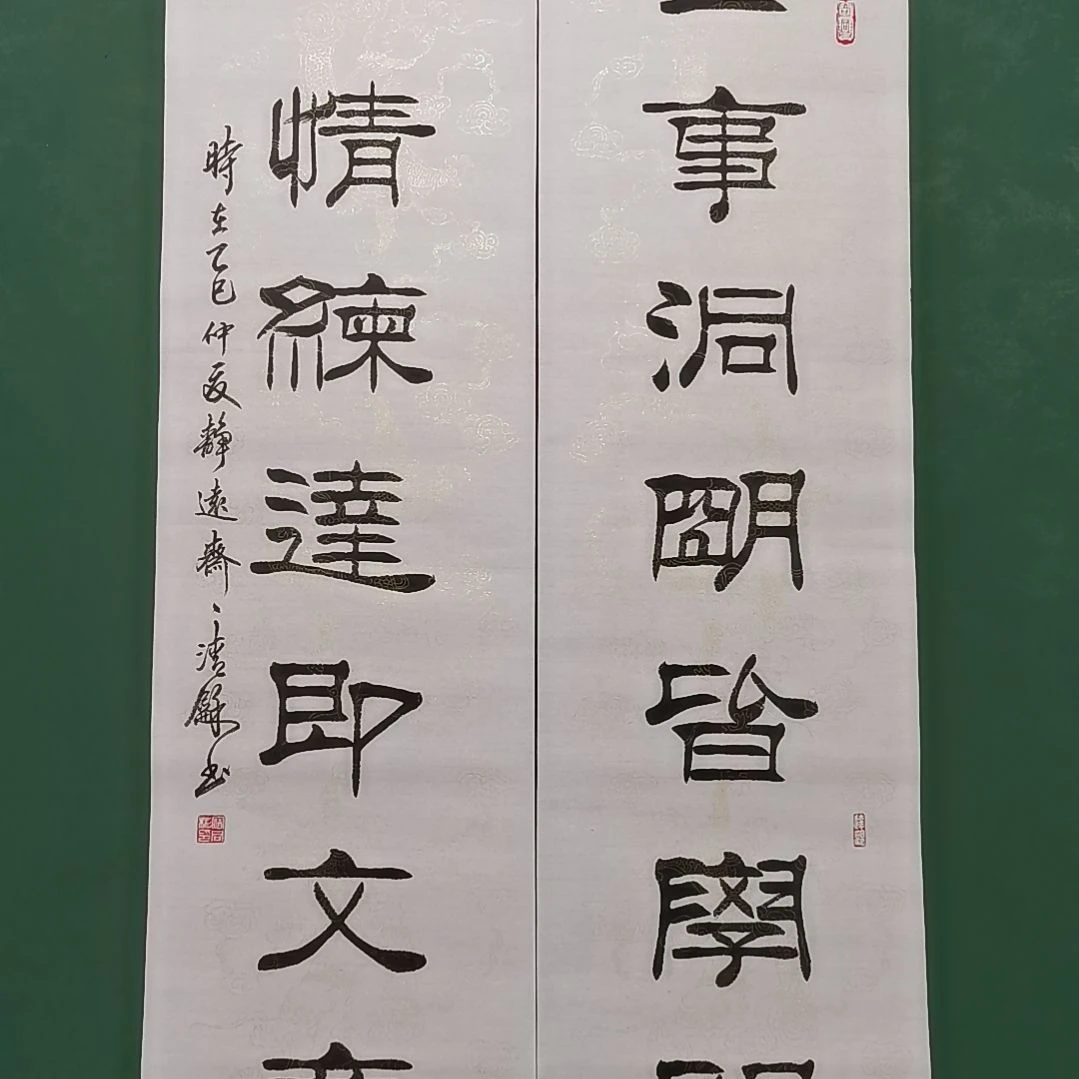 事洞朙皆學
情練達即文
時在乙巳仲夏靜遠齋書